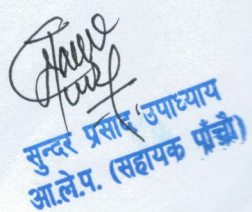 सुन्दर प्रसाद उपाध्याय
आ.ले.प. (सहायक पाँचौ)